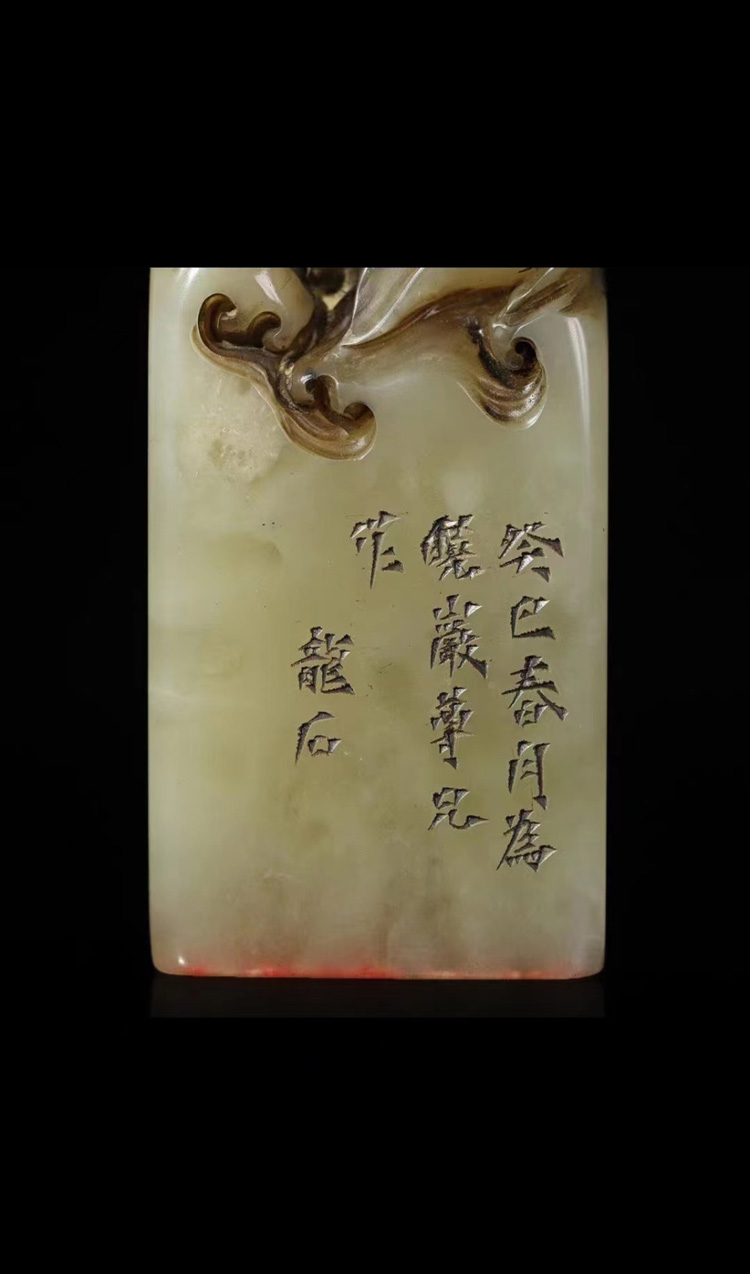 癸巳春月為
曉巖尊兄
作
龍石